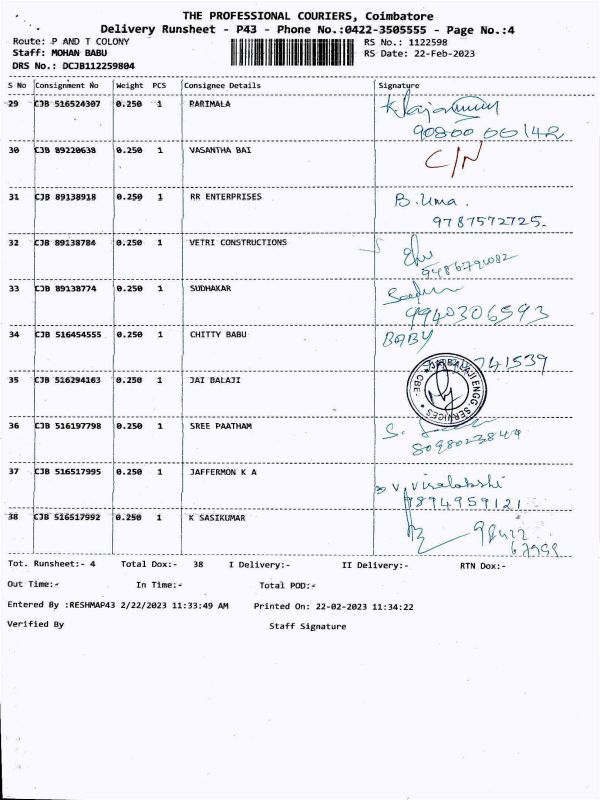 THE PROFESSIONAL COURIERS, Coimbatore
Delivery Runsheet - P43 - Phone No.:0422-3505555 - Page No.:4
Route: P AND T COLONY RS No.: 1122598
Staff: MOHAN BABU RS Date: 22-Feb-2023
DRS No.: DCJB112259804
S No Consignment No Weight PCS Consignee Details Signature
29 CJB 516524307 0.250 1 PARIMALA
90800 00142
30 CJB 89220638 0.250 1 VASANTHA BAI C/N
31 CJB 89138918 0.250 1 RR ENTERPRISES B. Uma.
9787572725.
32 CJB 89138784 0.250 1 VETRI CONSTRUCTIONS
9486791082
33 CJB 89138774 0.250 1 SUDHAKAR
9940306593
34 CJB 516454555 0.250 1 CHITTY BABU BABY
741539
35 CJB 516294163 0.250 1 JAI BALAJI JAI BALAJI ENGG SERVICES CBE-
36 CJB 516197798 0.250 1 SREE PAATHAM S.
37 CJB 516517995 0.250 1 JAFFERMON K A V. Viselakshi
7894959121
38 CJB 516517992 0.250 1 K SASIKUMAR 98422
Tot. Runsheet:- 4 Total Dox:- 38 I Delivery:- II Delivery:- RTN Dox:-
Out Time:- In Time:- Total POD:-
Entered By :RESHMAP43 2/22/2023 11:33:49 AM Printed On: 22-02-2023 11:34:22
Verified By Staff Signature